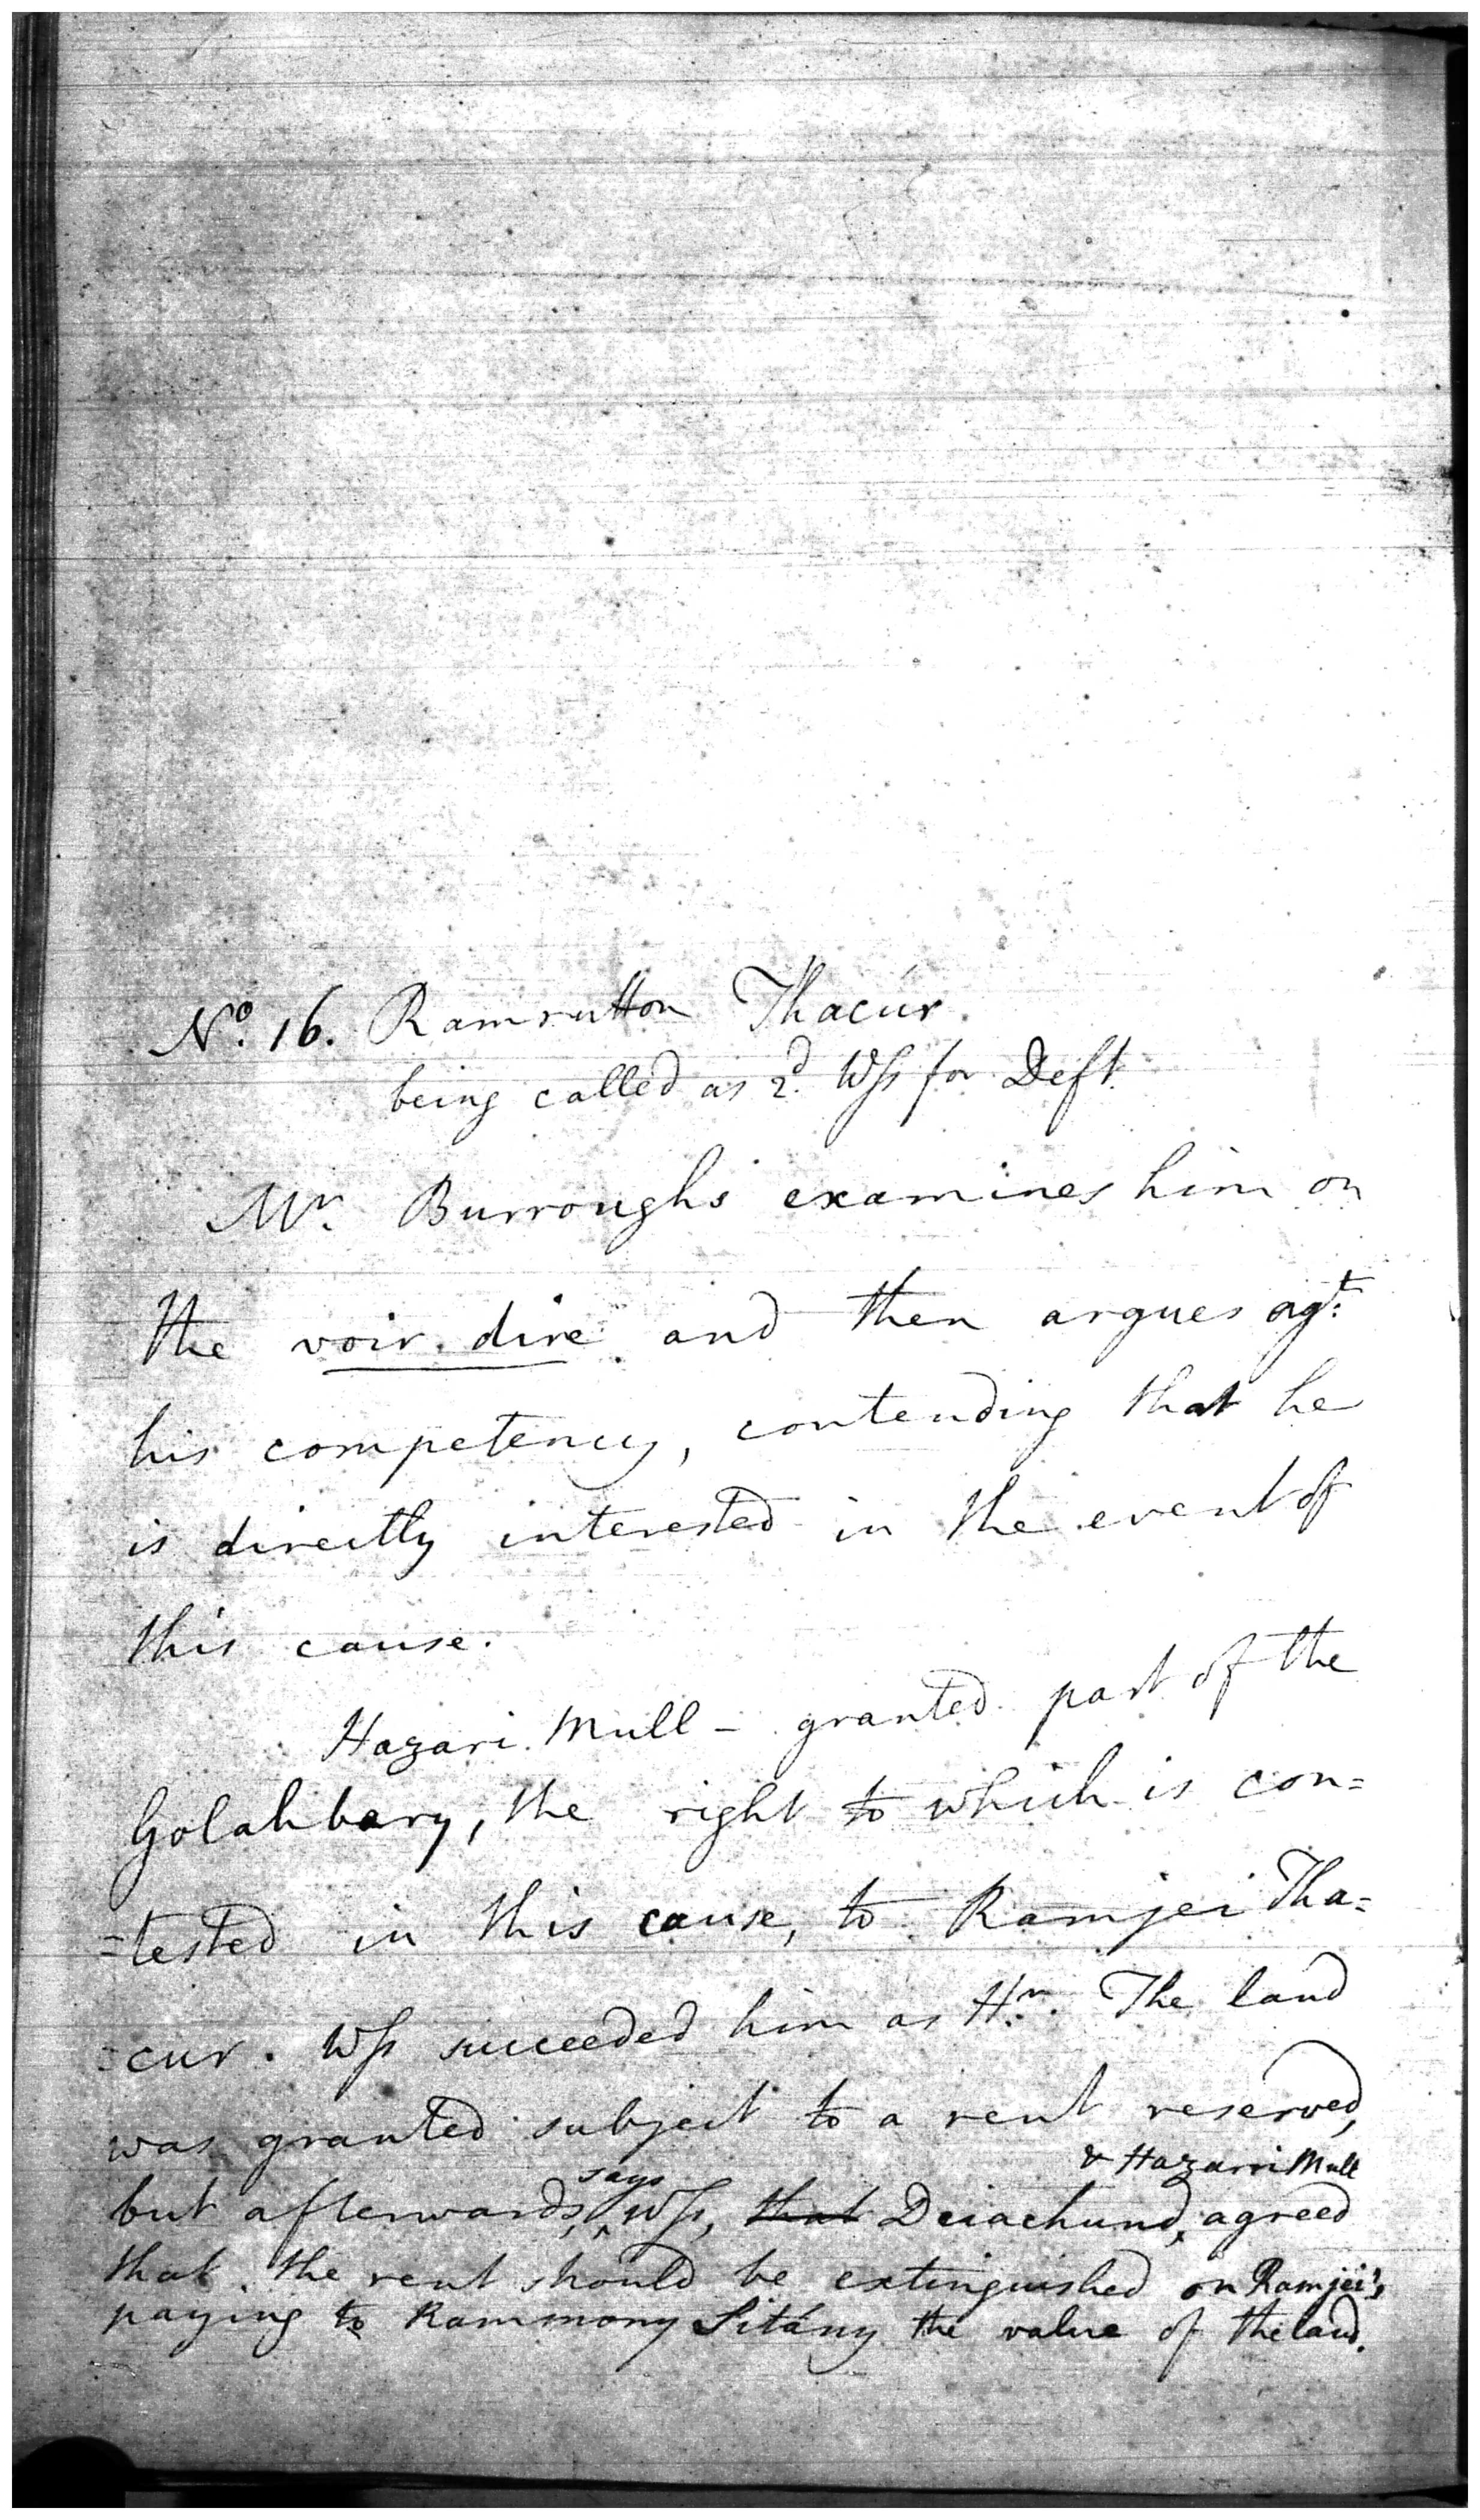 No. 16. Ramrutton Thacúr.
being called as 2d. Wss for Deft.
Mr. Burroughs examines him on
the voir dire and then argues agt.
his competency, contending that he
is directly interested in the event of
this cause.
Hazari Mull - granted part of the
Golahbary, the right to which is con=
=tested in this cause, to Ramjei Tha=
=cur. Wss succeeded him as Hr. The land
was granted subject to a rent reserved,
& Hazarri Mull
says
but afterwards, Wss, that Deiachund, agreed
that the rent should be extinguished on Ramjei's
paying to Rammony Sitány the value of the land.